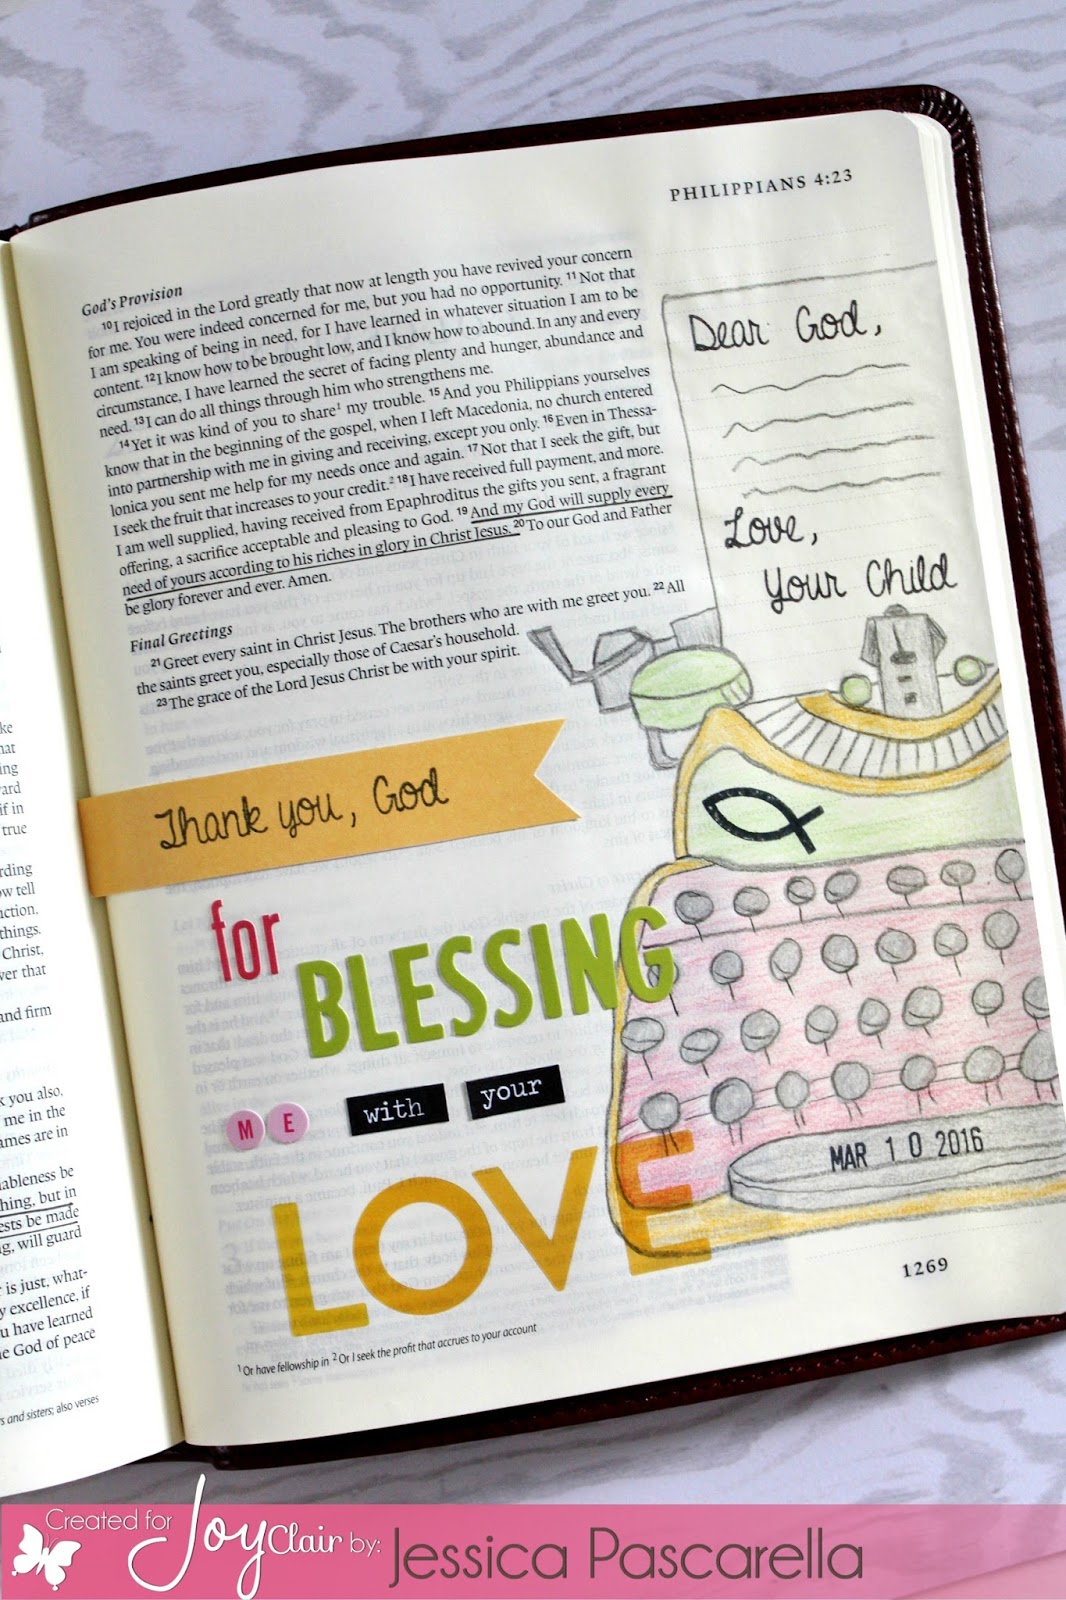 PHILIPPIANS 4:23
God's Provision
10 I rejoiced in the Lord greatly that now at length you have revived your concern
for me. You were indeed concerned for me, but you had no opportunity. 11 Not that
I am speaking of being in need, for I have learned in whatever situation I am to be
content. 12 I know how to be brought low, and I know how to abound. In any and every
circumstance, I have learned the secret of facing plenty and hunger, abundance and
need. 13 I can do all things through him who strengthens me.
14 Yet it was kind of you to share1 my trouble. 15 And you Philippians yourselves
know that in the beginning of the gospel, when I left Macedonia, no church entered
into partnership with me in giving and receiving, except you only. 16 Even in Thessa-
lonica you sent me help for my needs once and again. 17 Not that I seek the gift, but
I seek the fruit that increases to your credit.2 18 I have received full payment, and more.
I am well supplied, having received from Epaphroditus the gifts you sent, a fragrant
offering, a sacrifice acceptable and pleasing to God. 19 And my God will supply every
need of yours according to his riches in glory in Christ Jesus. 20 To our God and Father
be glory forever and ever. Amen.
Final Greetings
21 Greet every saint in Christ Jesus. The brothers who are with me greet you. 22 All
the saints greet you, especially those of Caesar's household.
23 The grace of the Lord Jesus Christ be with your spirit.
Dear God,
Love,
Your Child
Thank you, God
for
BLESSING
ME with your
LOVE
MAR 10 2016
1269
1 Or have fellowship in 2 Or I seek the profit that accrues to your account
true
tell
things.
Christ,
that
and firm
you also.
me in the
are in
be
thing, but in
be made
will guard
is just, what-
excellence, if
have learned
God of peace
and sisters; also verses
Created for Joy Clair by: Jessica Pascarella